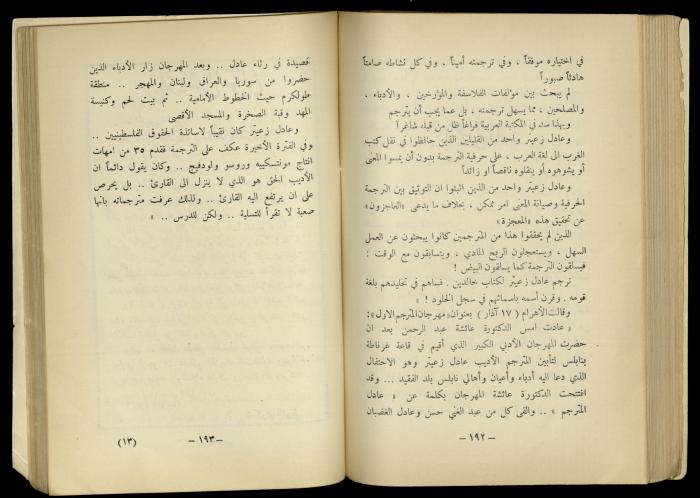 في اختياره موفقاً ، وفي ترجمته أميناً ، وفي كل نشاطه صامتاً
هادئاً صبوراً
لم يبحث بين مؤلفات الفلاسفة والمؤرخين ، والأدباء ،
والمصلحين ، مما يسهل ترجمته ، بل عما يجب أن يترجم
وبهذا سد في المكتبة العربية فراغاً ظل من قبله شاغراً
وعادل زعيتر واحد من القليلين الذين حافظوا في نقل كتب
الغرب الى لغة العرب ، على حرفية الترجمة بدون أن يمسوا المعنى
أو يشوهوه أو ينقلوه ناقصاً او زائداً
وعادل زعيتر واحد من الذين اثبتوا ان التوثيق بين الترجمة
الحرفية وصيانة المعنى امر ممكن ، بخلاف ما يدعى «العاجزون»
عن تحقيق هذه «المعجزة»
الذين لم يحققوا هذا من المترجمين كانوا يبحثون عن العمل
السهل ، ويستعجلون الربح المادي ، ويتسابقون مع الوقت :
فيسلقون الترجمة كما يسلقون البيض !
ترجم عادل زعيتر لكتاب خالدين . فساهم في تخليدهم بلغة
قومه . وقرن أسمه باسمائهم في سجل الخلود ! »
وقالت الأهرام ( ١٧ آذار ) بعنوان «مهرجان المترجم الاول»:
« عادت امس الدكتورة عائشة عبد الرحمن بعد ان
حضرت المهرجان الأدبي الكبير الذي أقيم في قاعة غرناطة
بنابلس لتأبين المترجم الأديب عادل زعيتر وهو الاحتفال
الذي دعا اليه أدباء وأعيان وأهالي نابلس بلد الفقيد ... وقد
افتتحت الدكتورة عائشة المهرجان بكلمة عن « عادل
المترجم » .. والقى كل من عبد الغني حسن وعادل الغضبان
– ١٩٢ –
قصيدة في رثاء عادل .. وبعد المهرجان زار الأدباء الذين
حضروا من سوريا والعراق ولبنان والمهجر .. منطقة
طولكرم حيث الخطوط الأمامية .. ثم بيت لحم وكنيسة
المهد وقبة الصخرة والمسجد الأقصى
وعادل زعيتر كان نقيباً لاساتذة الحقوق الفلسطينيين ..
وفي الفترة الأخيرة عكف على الترجمة فقدم ٣٥ من امهات
انتاج مونتسكييه وروسو ولودفيج .. وكان يقول دائماً ان
الأديب الحق هو الذي لا ينزل الى القارئ .. بل يحرص
على ان يرتفع اليه القارئ .. ولذلك عرفت مترجماته بانها
صعبة لا تقرأ للتسلية .. ولكن للدرس .. »
– ١٩٣ –
(١٣)